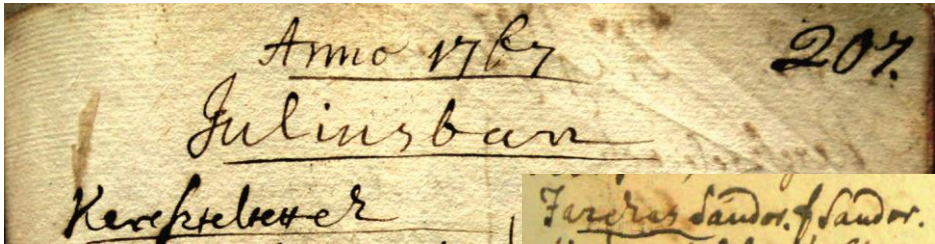 Anno 1767
207.
Juliusban
Kereszteltettek
Farkas Sándor. f Sandor.